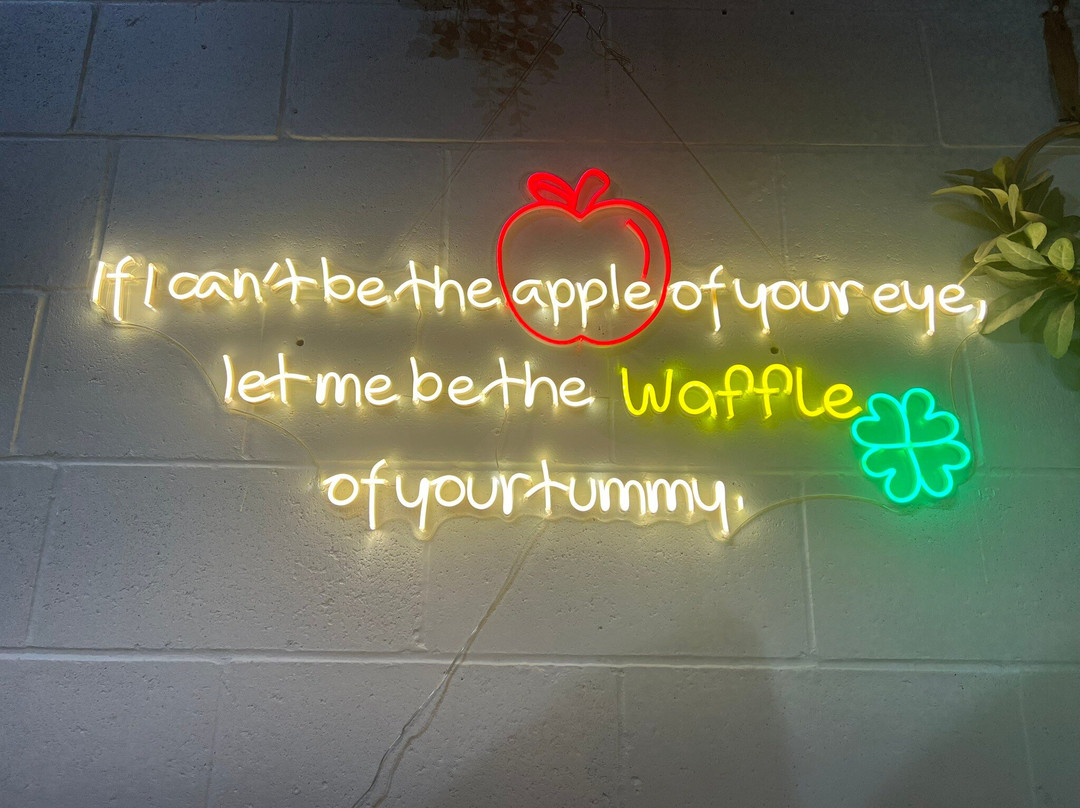 If I can't be the apple of your eye,
let me be the Waffle
of your tummy.